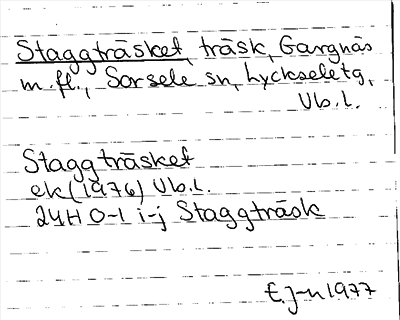 Staggträsket, träsk, Gargnäs
m.fl., Sorsele sn, Lyckseletg,
Vb.l.
Staggträsket
ek(1976) Vb.l.
24H 0-1 i-j Staggträsk
E.J-n 1977